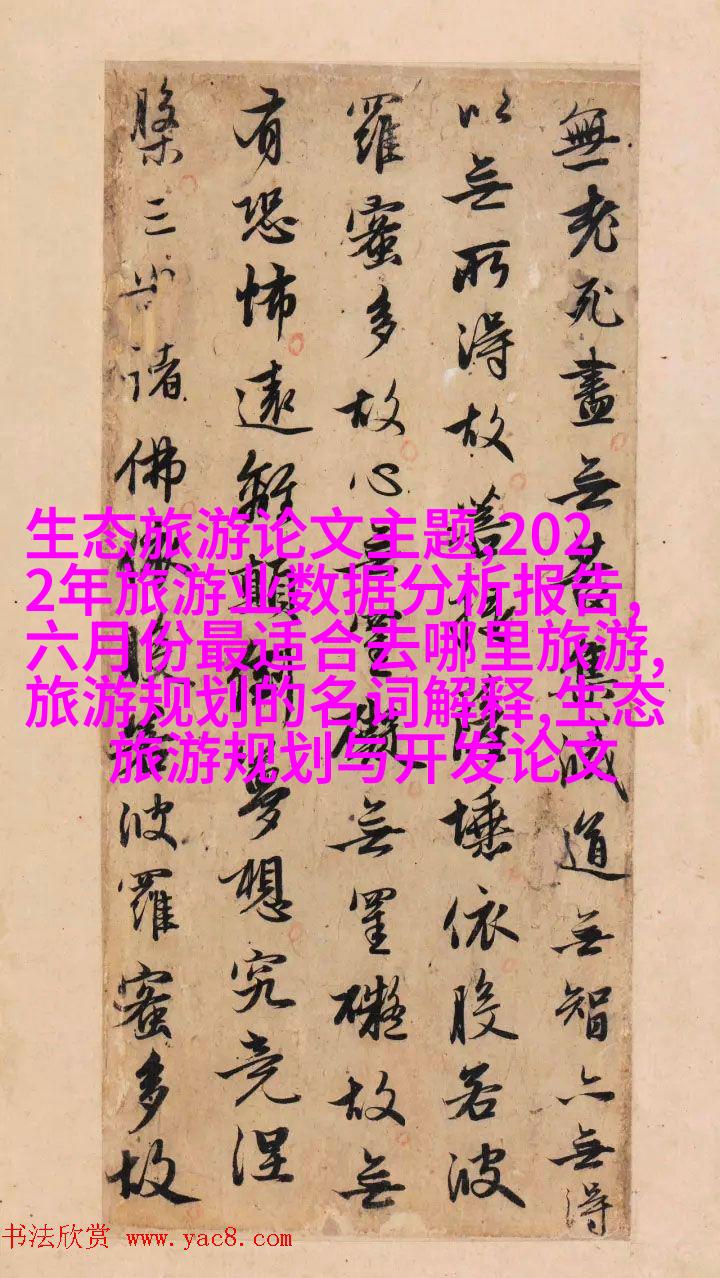 無老死盡无苦集滅道无智亦无得
以无所得故菩提薩埵依般若波
羅蜜多故心无罣礙无罣礙故无
有恐怖遠離顛倒夢想究竟涅
槃三世諸佛依般若波羅蜜多故
生态旅游论文主题,202
2年旅游业数据分析报告,
六月份最适合去哪里旅游,
旅游规划的名词解释,生态
旅游规划与开发论文
书法欣赏 www.yac8.com